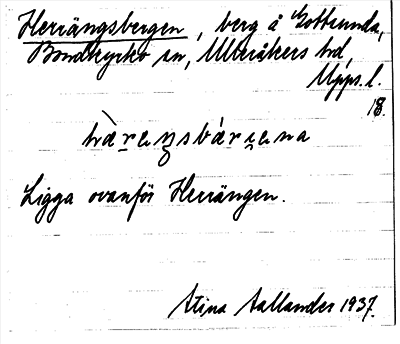 Herrängsbergen, berg å Gottsunda,
Bondkyrko sn, Ulleråkers hd,
Upps. l.
18.
hὰrεŋsbάrjεna
Ligga ovanför Herrängen.
Stina Sallander 1937.